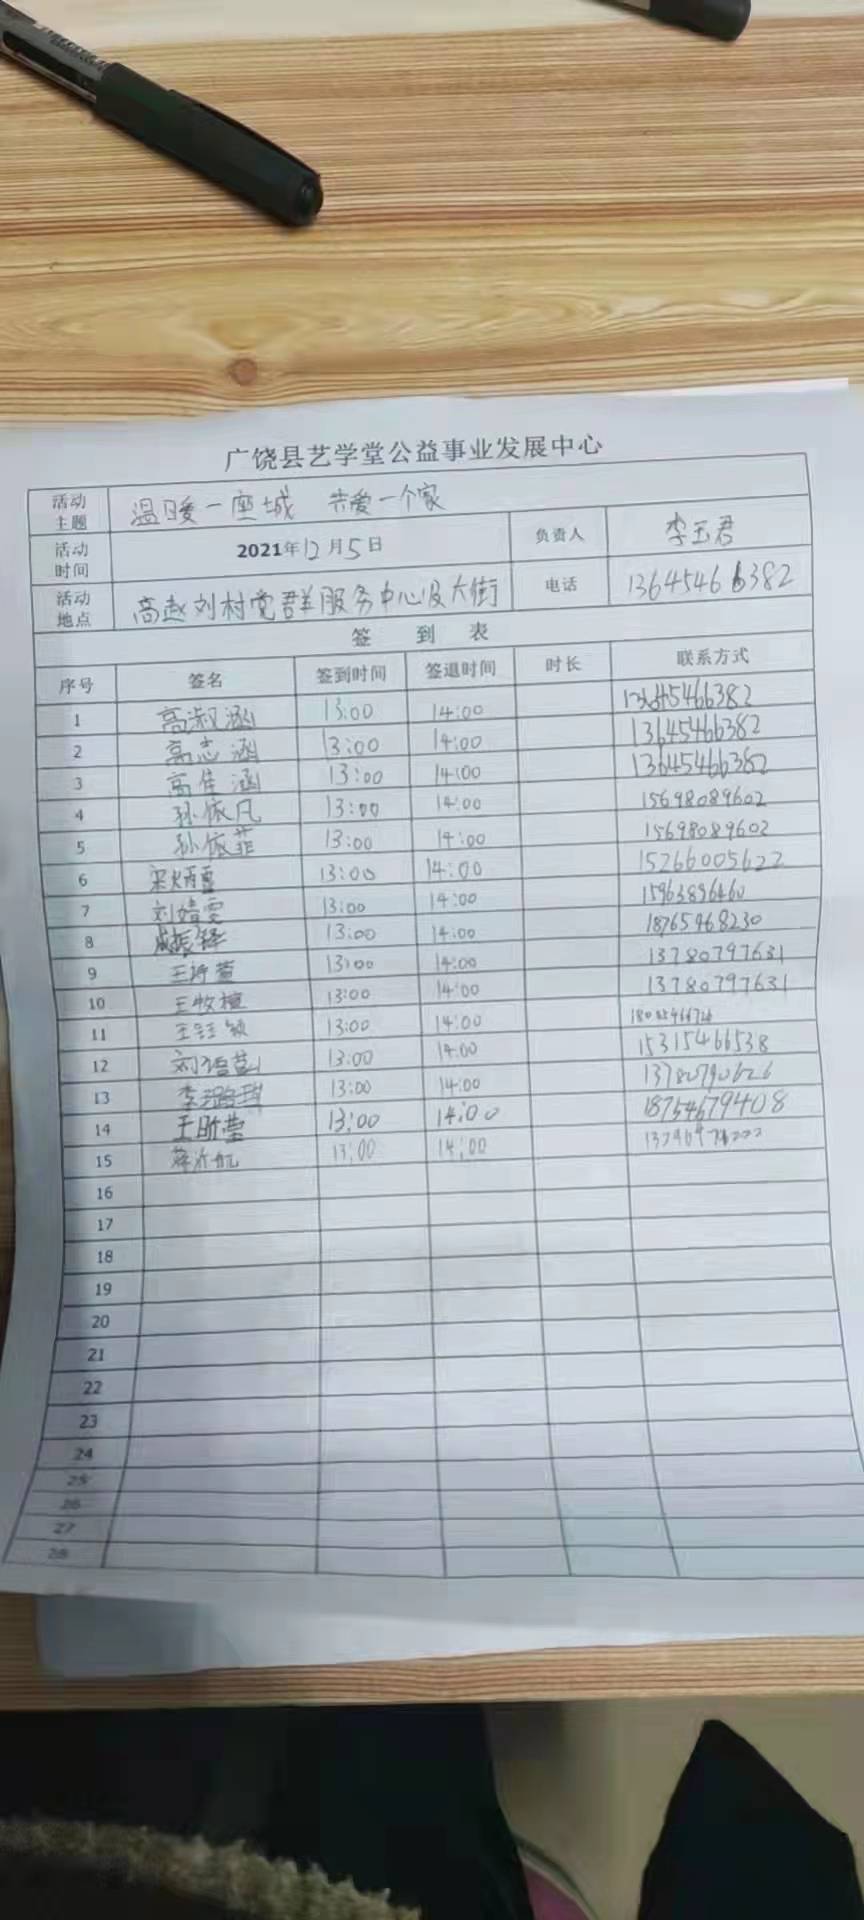 广饶县艺学堂公益事业发展中心
活动主题 温暖一座城 共爱一个家
活动时间 2021年12月5日 负责人 李玉君
活动地点 高赵刘村党群服务中心及大街 电话 13645466382
签 到 表
序号 签名 签到时间 签退时间 时长 联系方式
1 高淑涵 13:00 14:00 13645466382
2 高志涵 13:00 14:00 13645466382
3 高佳涵 13:00 14:00 13645466382
4 孙依凡 13:00 14:00 15698089602
5 孙依菲 13:00 14:00 15698089602
6 13:00 14:00 15266005622
7 刘婧雯 13:00 14:00 15963896460
8 13:00 14:00 18765468230
9 13:00 14:00 13780797631
10 王牧檀 13:00 14:00 13780797631
11 13:00 14:00
12 13:00 14:00 15315466538
13 李璐琪 13:00 14:00 13780790626
14 王昕莹 13:00 14:00 18754679408
15 13:00 14:00
16
17
18
19
20
21
22
23
24
25
26
27
28